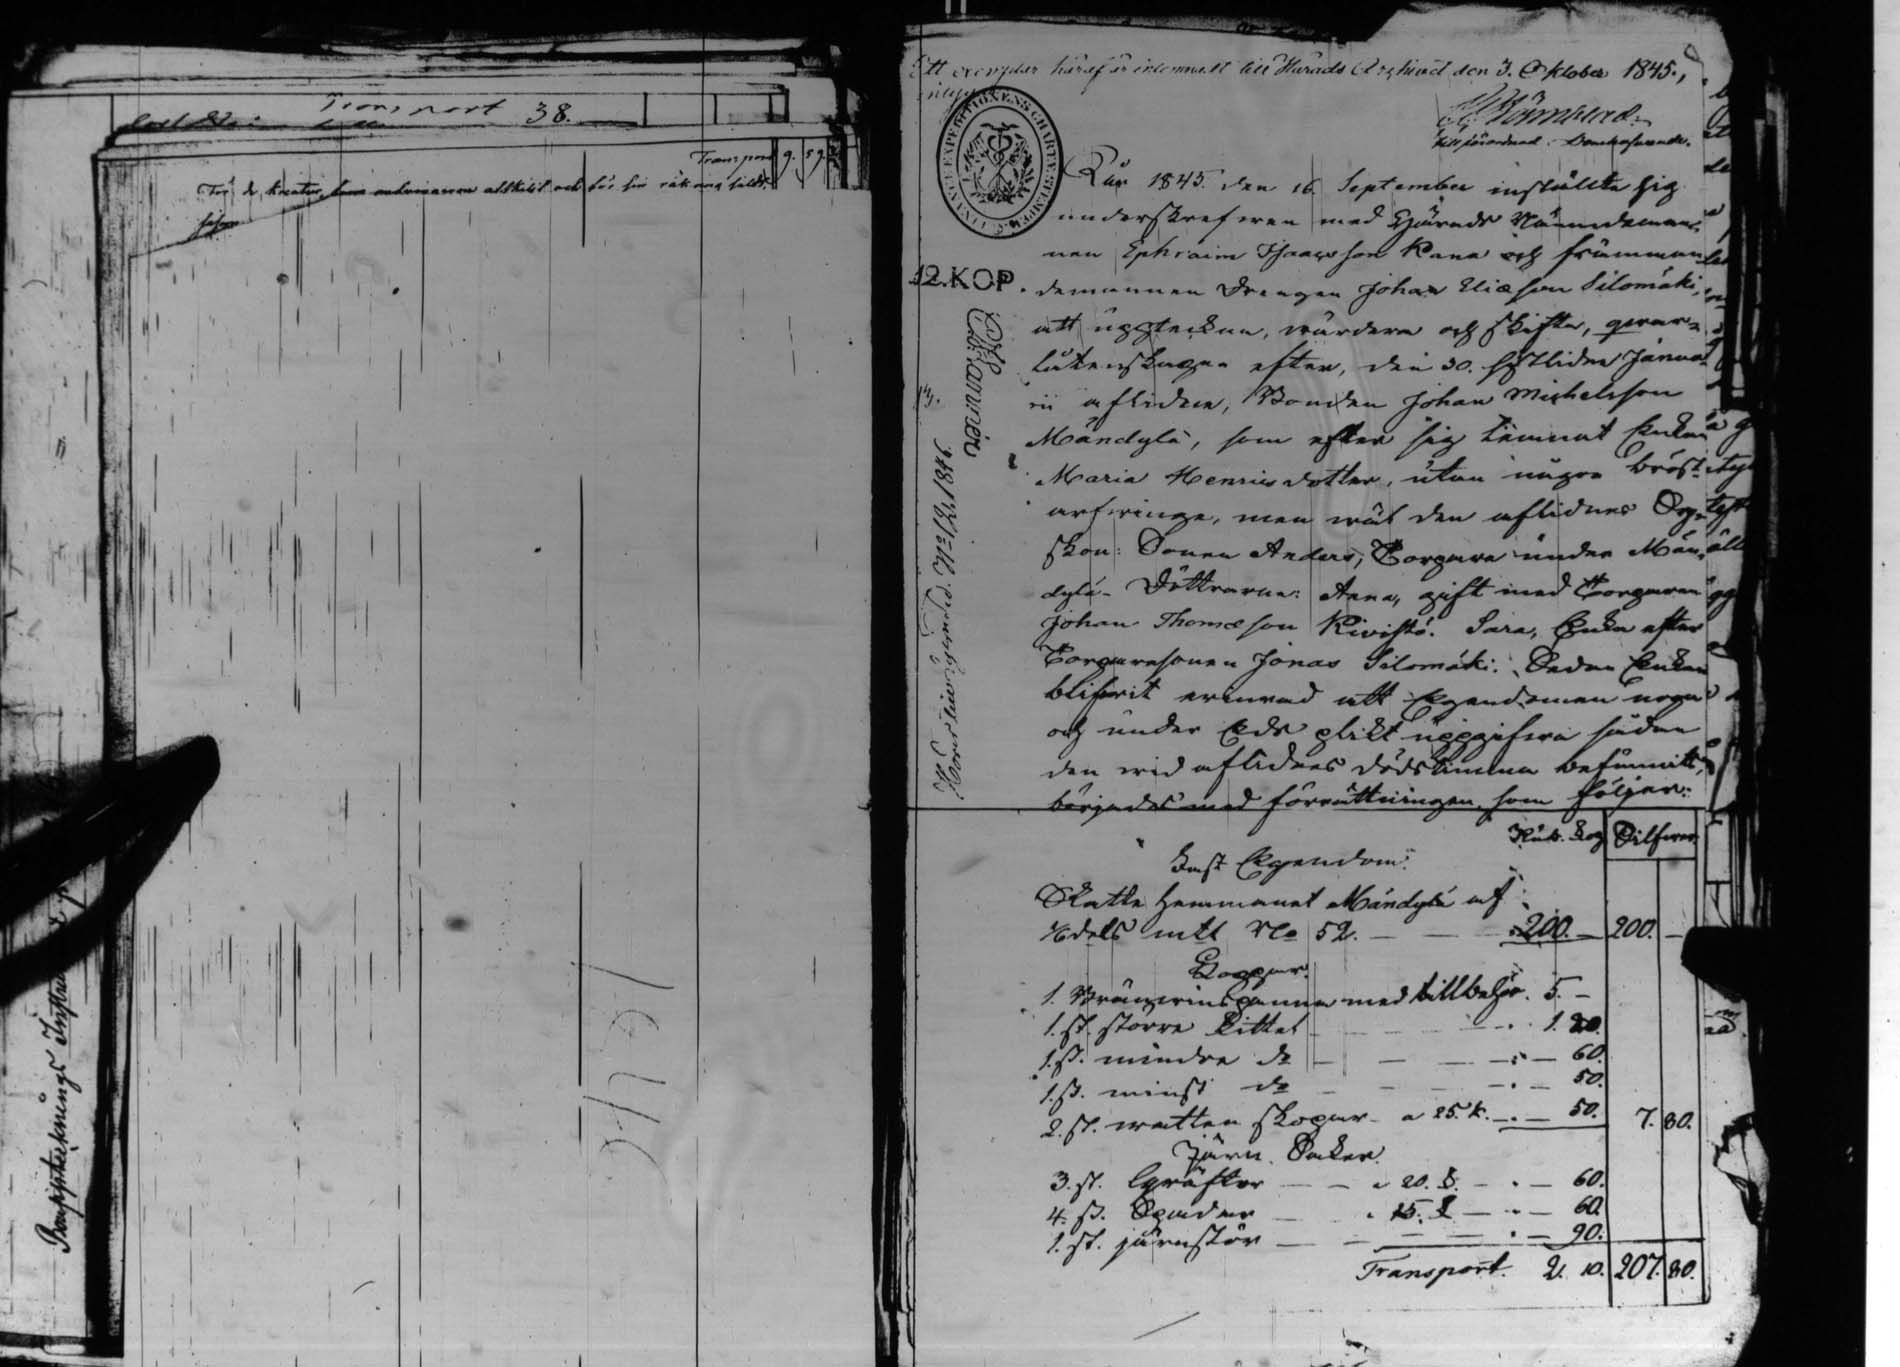 Transport 38.
Transport 9. 59.
För de kreatur,
Ett exemplar häraf är inlemnadt till Härads Archivet den 3. Oktober 1845.,
EXPEDITIONENS CHARTÆ STEMPEL
År 1845. den 16 September instälte sig
underskrefwen med Härads Nämndeman-
nen Ephraim Isaacsson Kana och främman
demannen Drengen Johan Eliæ son Silomäki,
12. KOP.
att uppteckna, wärdera och skifta, qwar-
låtenskapen efter, den 30. sistliden Janua-
rii aflidne, Bonden Johan Michelsson
Mändylä, som efter sig lämnat Enkan
Maria Henricsdotter, utan någon bröst-
arfwinge, men wäl den aflidnes Sys-
skon: Sonen Anders, Torpare under Män-
dylä - Döttrarne: Anna, gift med Torparen
Johan Thomæ son Kivistö. Sara, Enka efter
Torparesonen Jonas Silomäki. Sedan Enkan
blifwit erinrad att Egendomen noga
och under Eds plikt uppgifwa sådan
den wid aflidnes dödstimma befunnits,
börjades med förrättningen, som följer:
Rub. Kop Silfwer
Fast Egendom.
Skatte hemmanet Mändylä af
dels mtl No 52. — 200. — 200. —
Koppar.
1. Bränwinspanna med tillbehör. 5. —
1. st. större Kittel — 1. 20.
1. st. mindre do — 60.
1. st. minst do — 50.
2. st. watten skopar a 25. k. — 50. 7. 80.
Järn Saker.
3. st. Gräftor — a 20. k. — 60.
4. st. Spadar — a 15. k — 60.
1. st. järnstör — 90.
Transport. 2. 10. 207. 80.